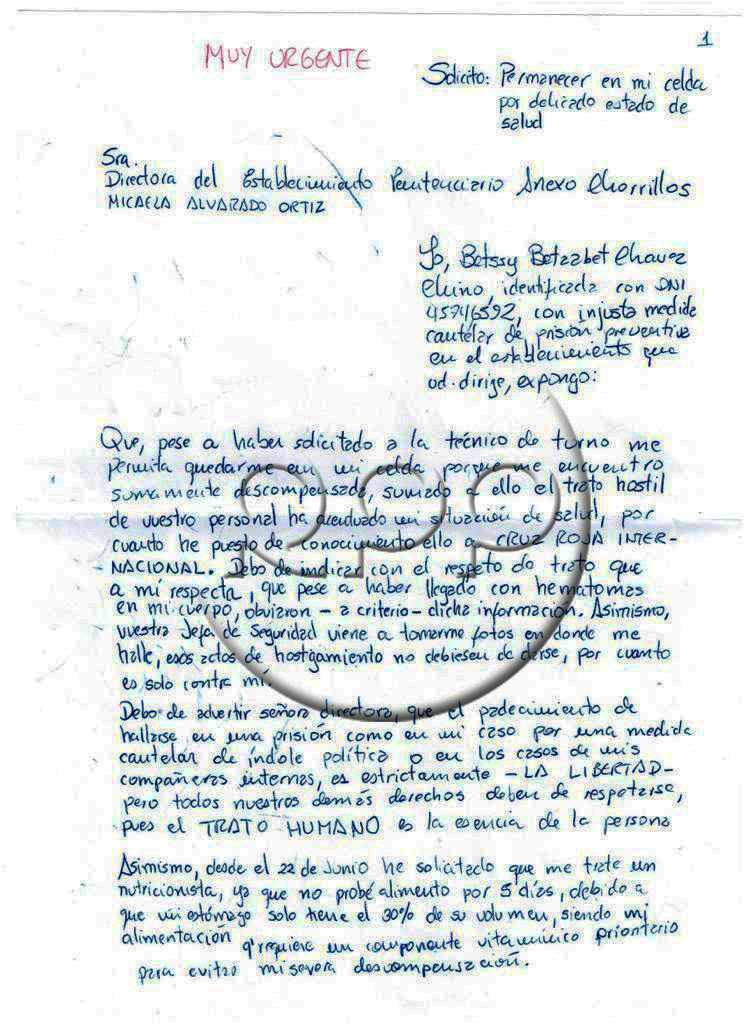 1
MUY URGENTE
Solicito: Permanecer en mi celda
por delicado estado de
salud
Sra.
Directora del Establecimiento Penitenciario Anexo Chorrillos
MICAELA ALVARADO ORTIZ
Yo, Betssy Betzabet Chavez
Chino, identificada con DNI
45746592, con injusta medida
cautelar de prisión preventiva
en el establecimiento que
ud. dirige, expongo:
Que, pese a haber solicitado a la técnico de turno me
permita quedarme en mi celda porque me encuentro
sumamente descompensada, sumado a ello el trato hostil
de vuestro personal ha acentuado mi situación de salud, por
cuanto he puesto de conocimiento ello a CRUZ ROJA INTER-
NACIONAL. Debo de indicar con el respeto do trato que
a mi respecta, que pese a haber llegado con hematomas
en mi cuerpo, obviaron - a criterio - dicha información. Asimismo,
vuestra Jefa de Seguridad viene a tomarme fotos en donde me
halle, esos actos de hostigamiento no debiesen de darse, por cuanto
es solo contra mí.
Debo de advertir señora directora, que el padecimiento de
hallarse en una prisión como en mi caso por una medida
cautelar de índole política o en los casos de mis
compañeras internas, es estrictamente - LA LIBERTAD -
pero todos nuestros demás derechos deben de respetarse,
pues el TRATO HUMANO es la esencia de la persona
Asimismo, desde el 22 de Junio he solicitado que me trate un
nutricionista, ya que no probé alimento por 5 días, debido a
que mi estómago solo tiene el 30% de su volumen, siendo mi
alimentación q' requiere un componente vitamínico prioritario
para evitar mi severa descompensación.
PPP